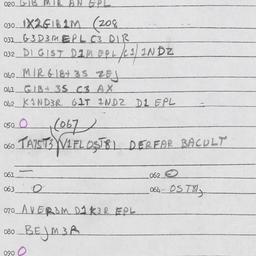 020 GIB MIR AN EPL
030 1X2GIB1M (208
031 G3D3M EPL C3 DIR
032 DI GIST D1M EPL/C1/1NDZ
040 MIR GIB+ 3S ZEJ
041 GIB+ 3S C3 AX
042 K1ND3R G1T 1NDZ D1 EPL
050 O (067
060 TATST3 V1FLOST81 DERFAR BACULT
061 — 062 O
063 O 064 OSTM3
070 AVER3M D1K3R EPL
080 BEJM3R
090 O